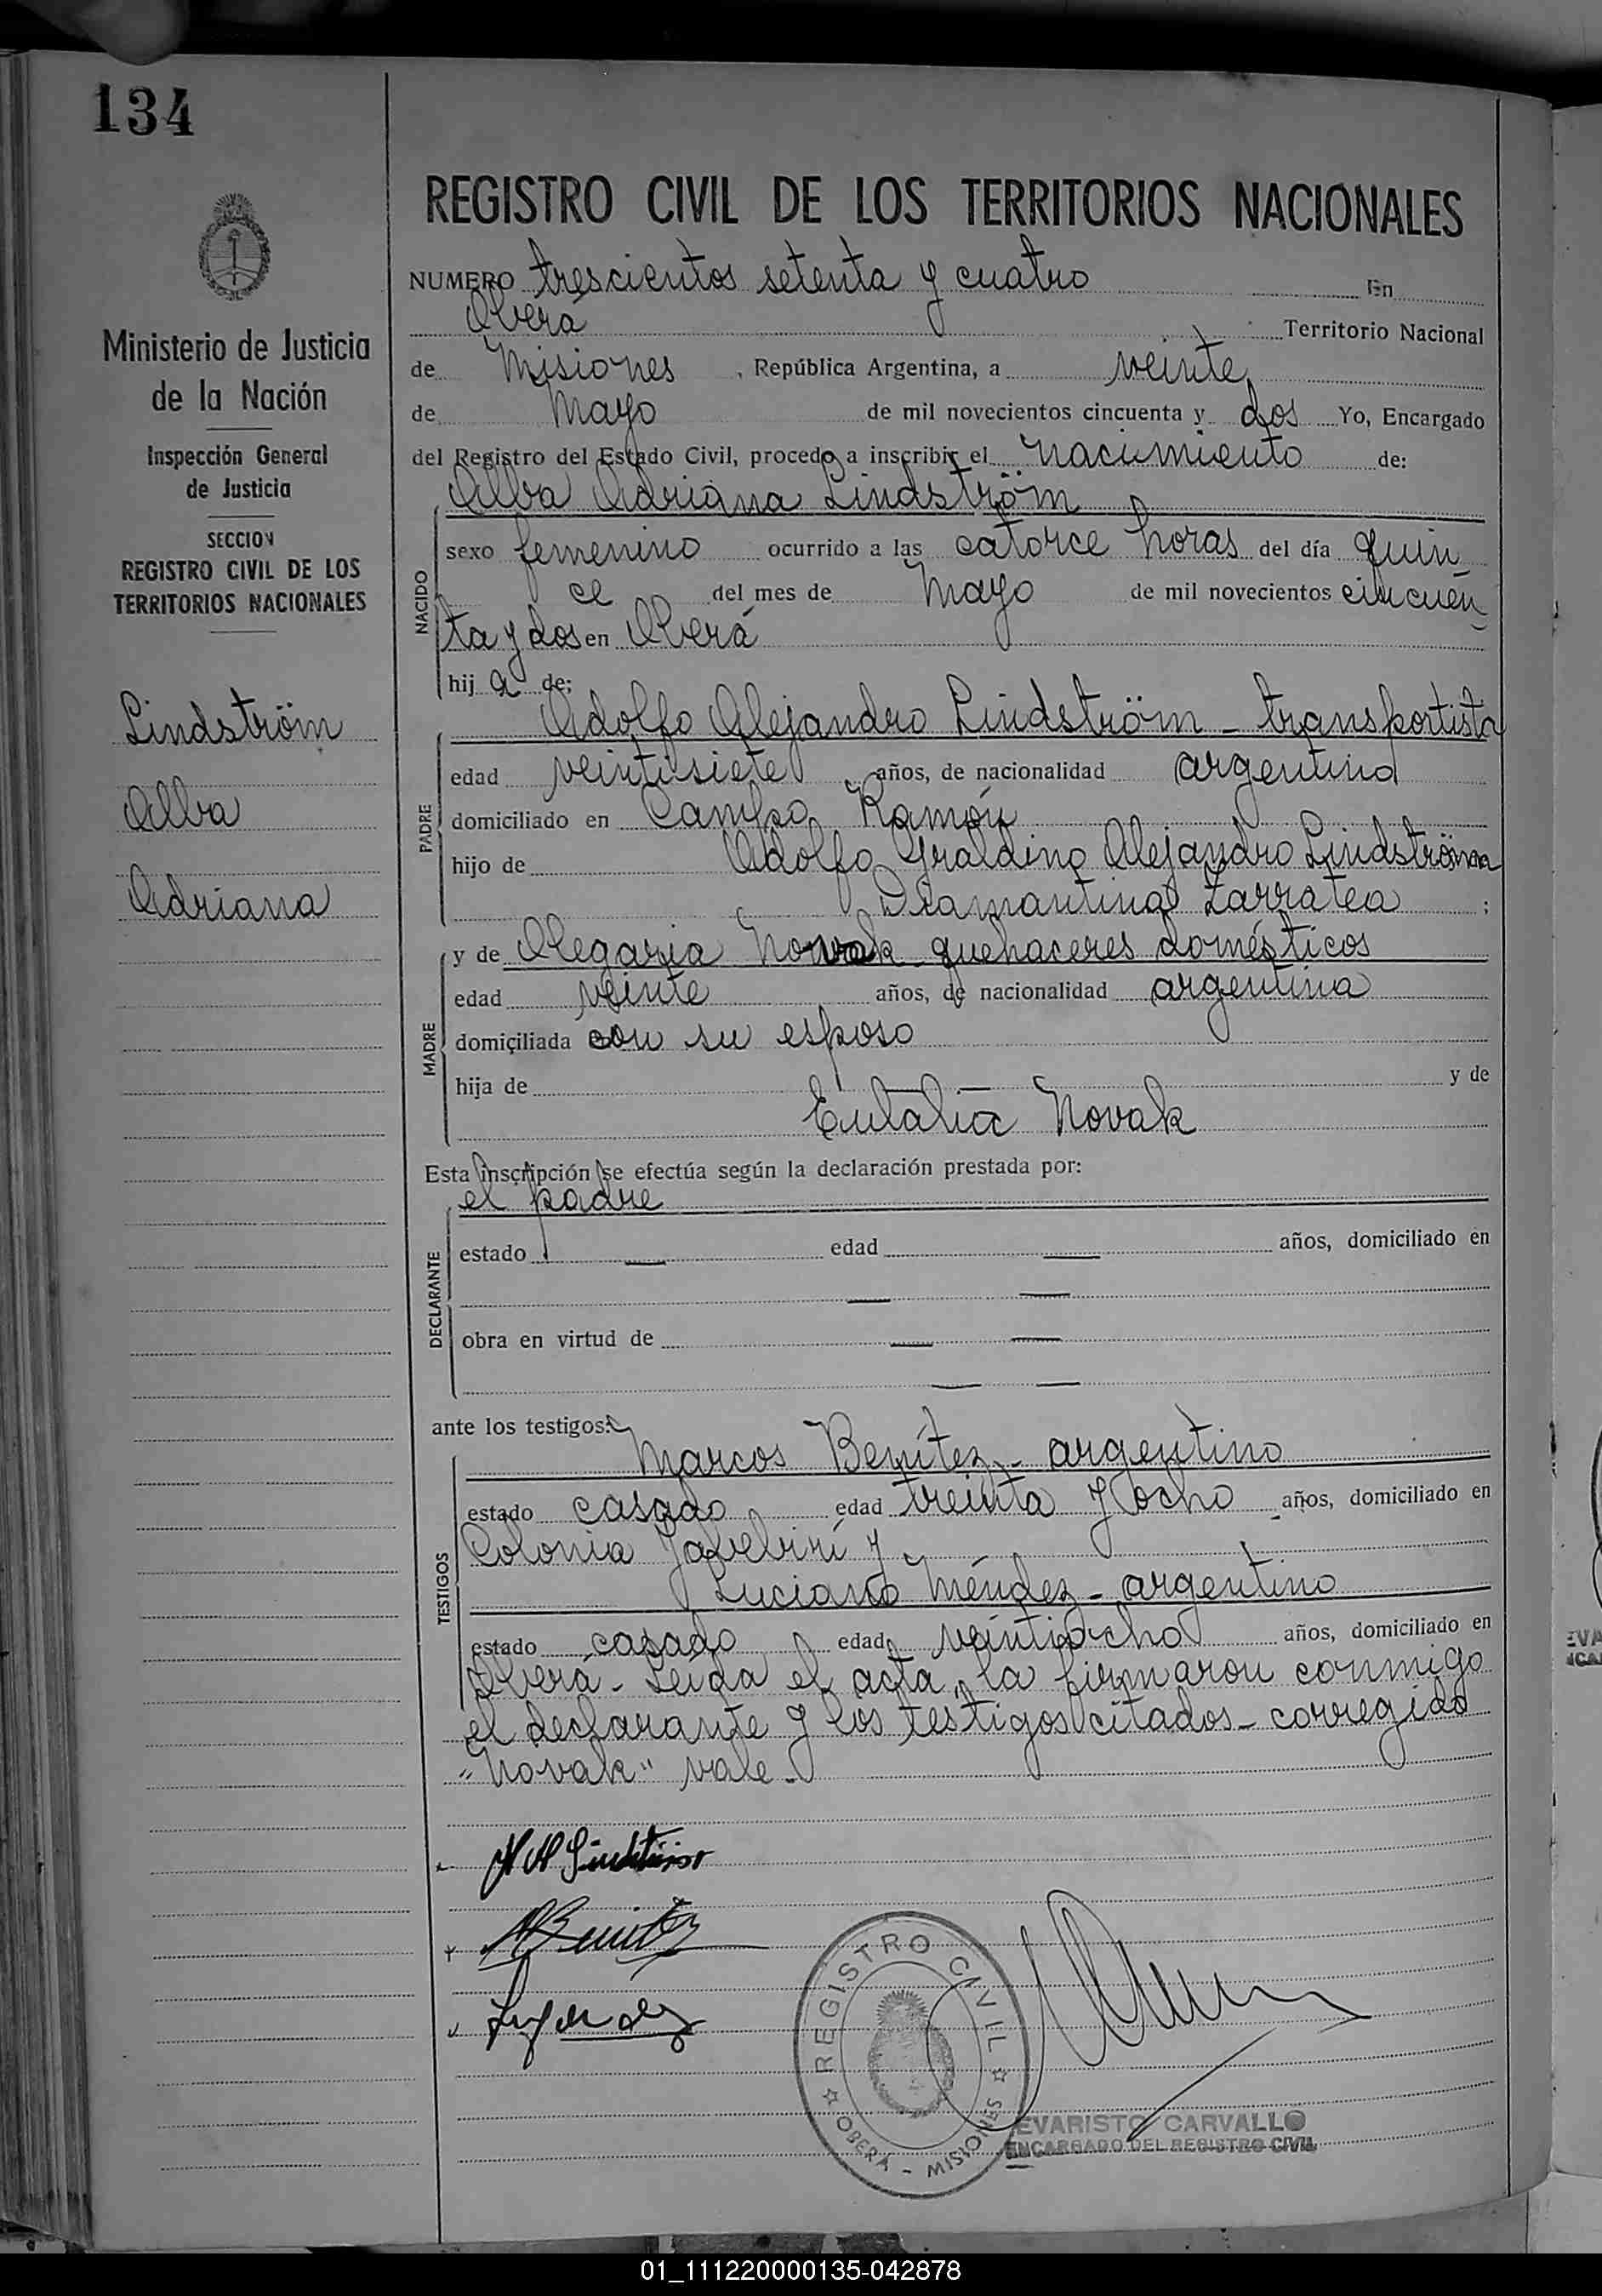 134
REGISTRO CIVIL DE LOS TERRITORIOS NACIONALES
NUMERO trescientos setenta y cuatro En
Oberá Territorio Nacional
de Misiones, República Argentina, a veinte
de Mayo de mil novecientos cincuenta y dos Yo, Encargado
del Registro del Estado Civil, procedo a inscribir el nacimiento de:
Alba Adriana Lindström
NACIDO
sexo femenino ocurrido a las catorce horas del día quin_
ce del mes de Mayo de mil novecientos cincuen_
ta y dos en Oberá
hij a de:
Adolfo Alejandro Lindström - transportista
PADRE
edad veintisiete años, de nacionalidad argentino
domiciliado en Campo Ramón
hijo de Adolfo Alejandro Lindström
Diamantina Zarratea ;
MADRE
y de Olegaria Novak quehaceres domésticos
edad veinte años, de nacionalidad argentina
domiciliada con su esposo
hija de — — y de
Eulalia Novak
Esta inscripción se efectúa según la declaración prestada por:
el padre
DECLARANTE
estado — edad — años, domiciliado en
— —
obra en virtud de — —
— —
ante los testigos:
TESTIGOS
Marcos Benítez - argentino
estado casado edad treinta y ocho años, domiciliado en
Colonia Yabebirí y
Luciano Méndez - argentino
estado casado edad veintiocho años, domiciliado en
Oberá - Leída el acta, la firmaron conmigo
el declarante y los testigos citados - corregido
"Novak" vale -
Ministerio de Justicia
de la Nación
Inspección General
de Justicia
SECCION
REGISTRO CIVIL DE LOS
TERRITORIOS NACIONALES
Lindström
Alba
Adriana
A A Lindström
MBenitez
REGISTRO CIVIL
OBERÁ - MISIONES
EVARISTO CARVALLO
ENCARGADO DEL REGISTRO CIVIL
01_111220000135-042878